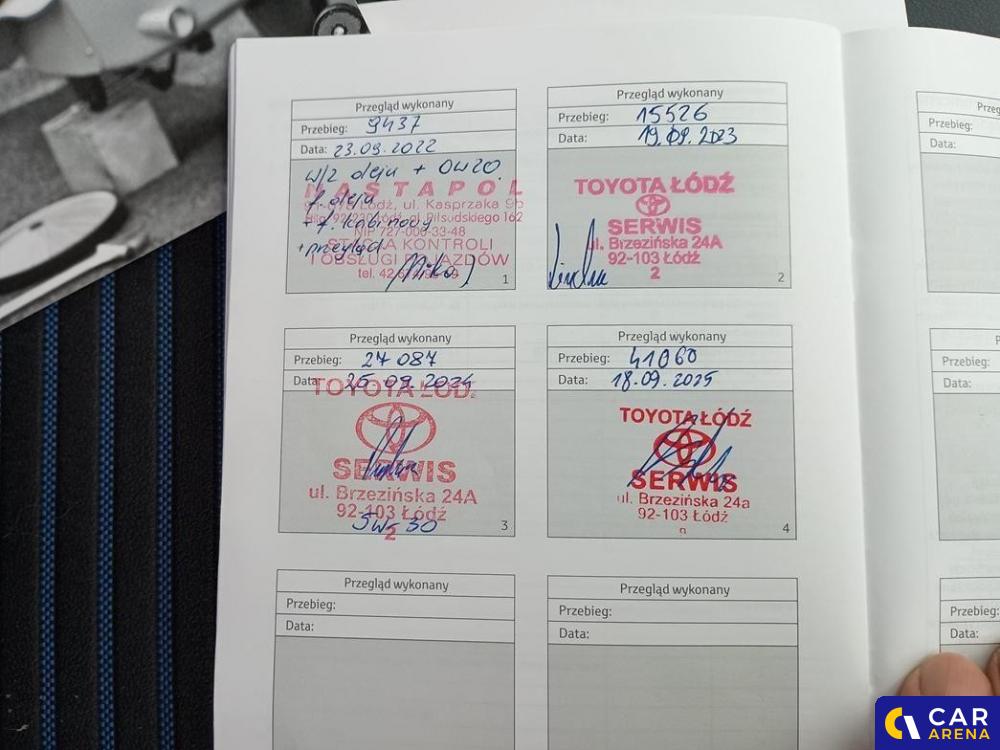 Przegląd wykonany
Przebieg: 9437
Data: 23.09.2022
w/z oleju + 0W20
NASTAPOL
f. oleju
Łódź, ul. Kasprzaka
ul. Piłsudskiego 162
+ f. kabinowy
NIP 727-000-33-48
+ przegląd
STACJA KONTROLI
I OBSŁUGI POJAZDÓW
tel. 42
1
Przegląd wykonany
Przebieg: 15526
Data: 19.09.2023
TOYOTA ŁÓDŹ
SERWIS
ul. Brzezińska 24A
92-103 Łódź
2
2
Przegląd wykonany
Przebieg: 27 087
Data: 25 09.2024
TOYOTA ŁÓD.
SERWIS
ul. Brzezińska 24A
92-103 Łódź
5W-30
2
3
Przegląd wykonany
Przebieg: 41060
Data: 18.09.2025
TOYOTA ŁÓDŹ
SERWIS
ul. Brzezińska 24a
92-103 Łódź
4
Przegląd wykonany
Przebieg:
Data:
Przegląd wykonany
Przebieg:
Data:
Przeg
Przebieg:
Data:
P
Przebieg:
Data:
Przebieg:
Data:
CAR
ARENA